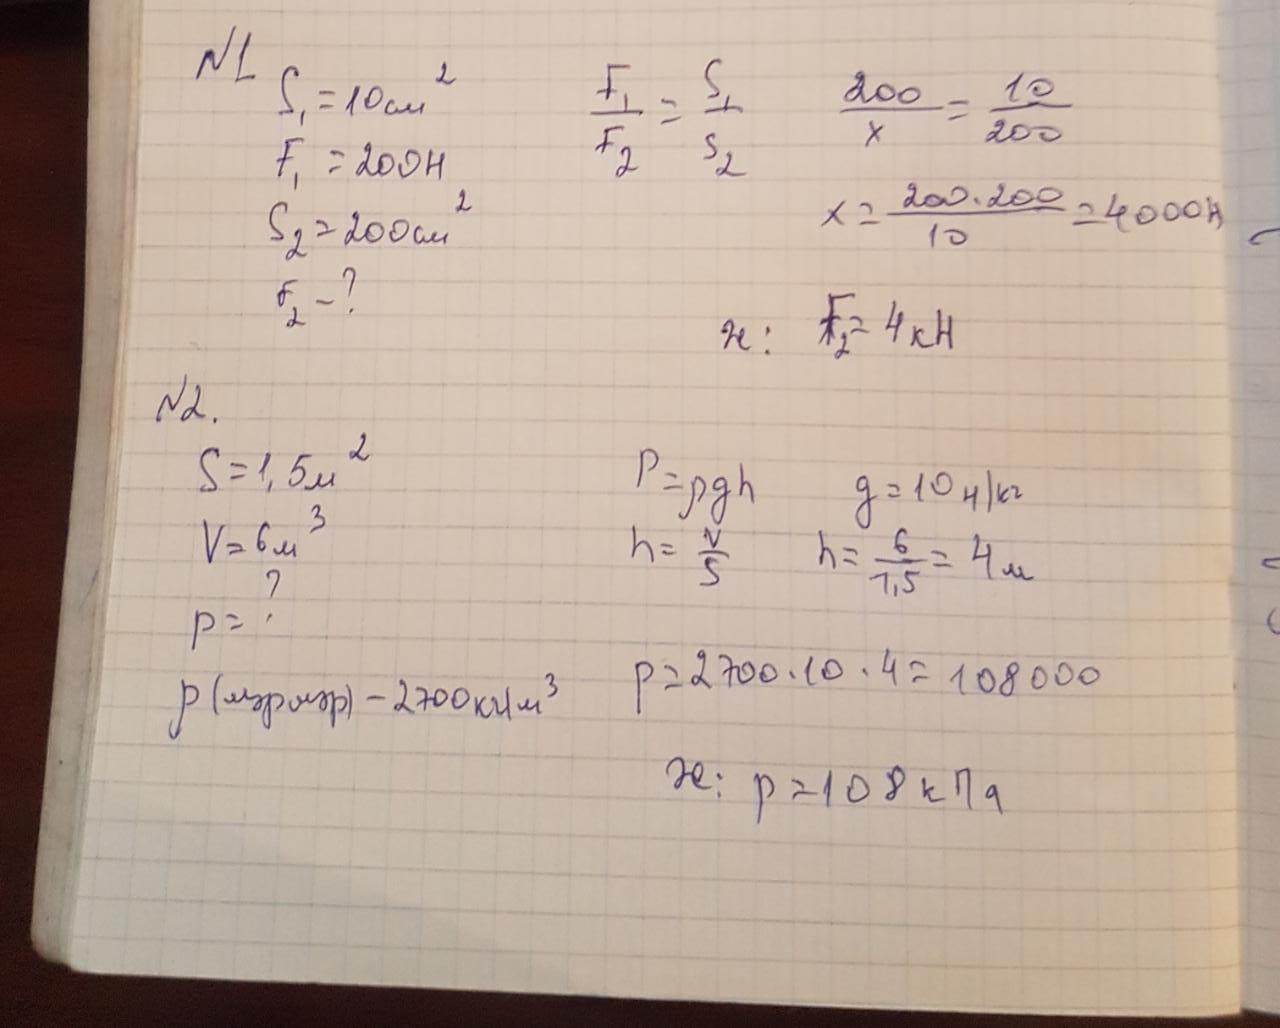 N1
S₁ = 10 см²
F₁ = 200 Н
S₂ = 200 см²
F₂ - ?
F₁/F₂ = S₁/S₂
200/x = 10/200
x = 200·200/10 = 4000 Н
ж: F₂ = 4 кН
N2.
S = 1,5 м²
V = 6 м³
p = ?
ρ (мәрмәр) - 2700 кг/м³
P = ρgh
g = 10 н/кг
h = V/S
h = 6/1,5 = 4 м
p = 2700·10·4 = 108000
ж: p = 108 кПа